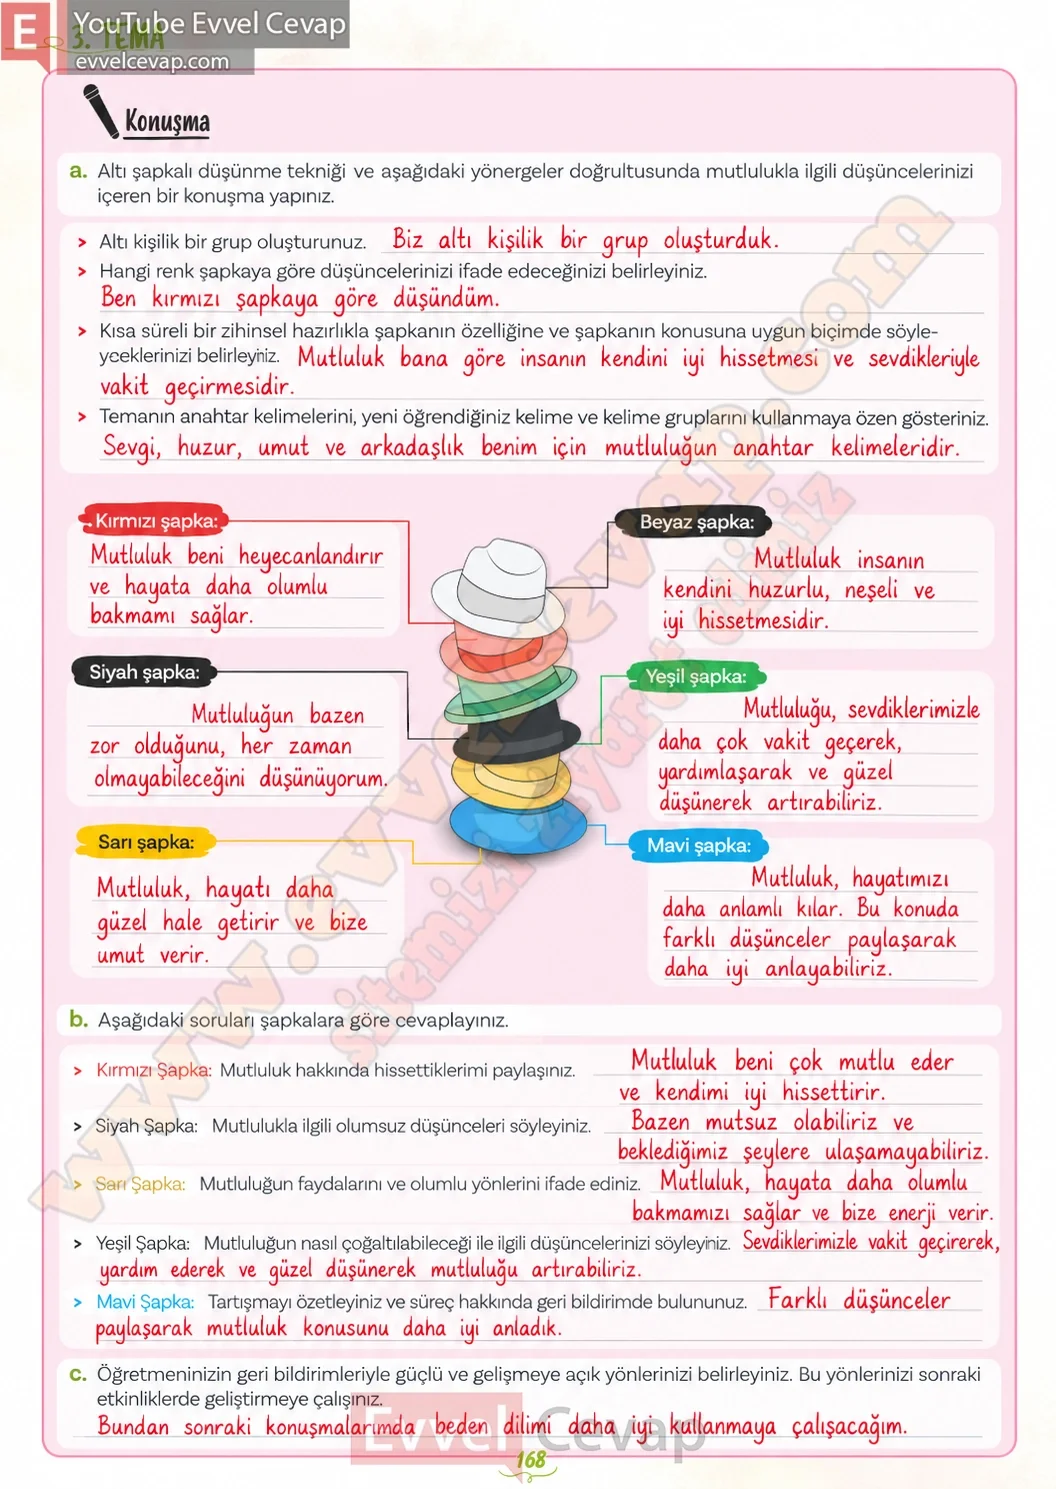 YouTube Evvel Cevap
3. TEMA
evvelcevap.com
Konuşma
a. Altı şapkalı düşünme tekniği ve aşağıdaki yönergeler doğrultusunda mutlulukla ilgili düşüncelerinizi
içeren bir konuşma yapınız.
> Altı kişilik bir grup oluşturunuz. Biz altı kişilik bir grup oluşturduk.
> Hangi renk şapkaya göre düşüncelerinizi ifade edeceğinizi belirleyiniz.
Ben kırmızı şapkaya göre düşündüm.
> Kısa süreli bir zihinsel hazırlıkla şapkanın özelliğine ve şapkanın konusuna uygun biçimde söyle-
yceklerinizi belirleyiniz. Mutluluk bana göre insanın kendini iyi hissetmesi ve sevdikleriyle
vakit geçirmesidir.
> Temanın anahtar kelimelerini, yeni öğrendiğiniz kelime ve kelime gruplarını kullanmaya özen gösteriniz.
Sevgi, huzur, umut ve arkadaşlık benim için mutluluğun anahtar kelimeleridir.
Kırmızı şapka:
Mutluluk beni heyecanlandırır
ve hayata daha olumlu
bakmamı sağlar.
Beyaz şapka:
Mutluluk insanın
kendini huzurlu, neşeli ve
iyi hissetmesidir.
Siyah şapka:
Mutluluğun bazen
zor olduğunu, her zaman
olmayabileceğini düşünüyorum.
Yeşil şapka:
Mutluluğu, sevdiklerimizle
daha çok vakit geçerek,
yardımlaşarak ve güzel
düşünerek artırabiliriz.
Sarı şapka:
Mutluluk, hayatı daha
güzel hale getirir ve bize
umut verir.
Mavi şapka:
Mutluluk, hayatımızı
daha anlamlı kılar. Bu konuda
farklı düşünceler paylaşarak
daha iyi anlayabiliriz.
b. Aşağıdaki soruları şapkalara göre cevaplayınız.
> Kırmızı Şapka: Mutluluk hakkında hissettiklerimi paylaşınız. Mutluluk beni çok mutlu eder
ve kendimi iyi hissettirir.
> Siyah Şapka: Mutlulukla ilgili olumsuz düşünceleri söyleyiniz. Bazen mutsuz olabiliriz ve
beklediğimiz şeylere ulaşamayabiliriz.
> Sarı Şapka: Mutluluğun faydalarını ve olumlu yönlerini ifade ediniz. Mutluluk, hayata daha olumlu
bakmamızı sağlar ve bize enerji verir.
> Yeşil Şapka: Mutluluğun nasıl çoğaltılabileceği ile ilgili düşüncelerinizi söyleyiniz. Sevdiklerimizle vakit geçirerek,
yardım ederek ve güzel düşünerek mutluluğu artırabiliriz.
> Mavi Şapka: Tartışmayı özetleyiniz ve süreç hakkında geri bildirimde bulununuz. Farklı düşünceler
paylaşarak mutluluk konusunu daha iyi anladık.
c. Öğretmeninizin geri bildirimleriyle güçlü ve gelişmeye açık yönlerinizi belirleyiniz. Bu yönlerinizi sonraki
etkinliklerde geliştirmeye çalışınız.
Bundan sonraki konuşmalarımda beden dilimi daha iyi kullanmaya çalışacağım.
Evvel Cevap
168
www.evvelcevap.com
sitemizi ziyaret ediniz